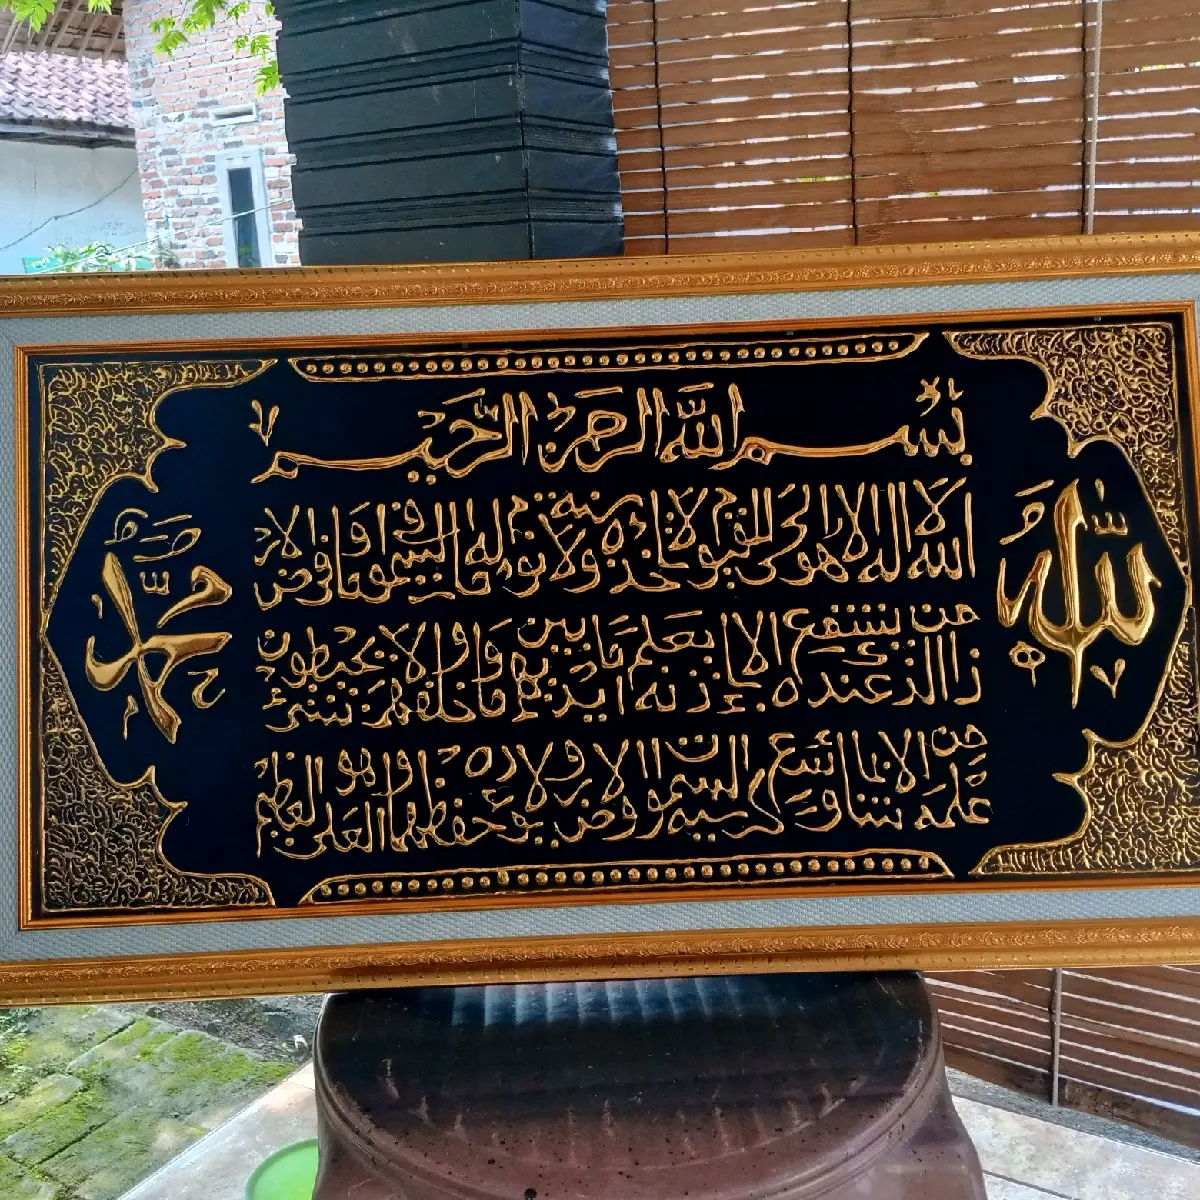 الله
بسم الله الرحمن الرحيم
الله لا اله الا هو الحي القيوم لا تأخذه سنة ولا نوم له ما في السموت وما في الارض
من ذا الذي يشفع عنده الا بإذنه يعلم ما بين أيديهم وما خلفهم ولا يحيطون بشيء
من علمه الا بما شاء وسع كرسيه السموت والارض ولا يؤده حفظهما وهو العلي العظيم
محمد